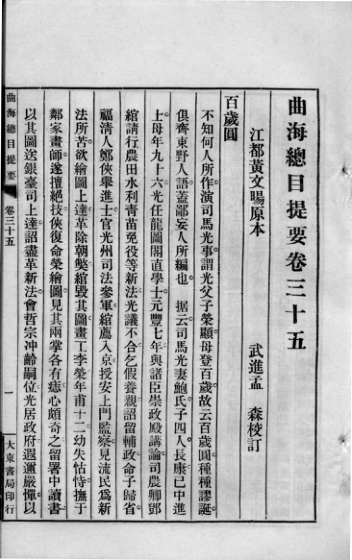 曲海總目提要卷三十五
江都黃文暘原本
武進孟　森校訂
百歲圓
不知何人所作演司馬光事謂光父子榮顯母登百歲故云百歲圓種種謬誕
俱齊東野人語蓋鄙妄人所編也　据云司馬光妻鮑氏子四人長康已中進
士母年九十六光任龍圖閣直學士元豐七年與諸臣崇政殿講論司農卿鄧
綰請行農田水利青苗免役等新法光議不合乞假養親詔留輔政命子歸省
福清人鄭俠舉進士官光州司法參軍綰薦入京授安上門監察見流民爲新
法所苦欲繪圖上達革除朝獘綰毀其圖畫工李榮年甫十二幼失怙恃撫于
鄰家畫師遂擅絕技俠復命榮繪圖見其兩掌各有痣心頗奇之留署中讀書
以其圖送銀臺司上達詔盡革新法會哲宗冲齡嗣位光居政府遐邇嚴憚以
曲海總目提要　卷三十五
一
大東書局印行